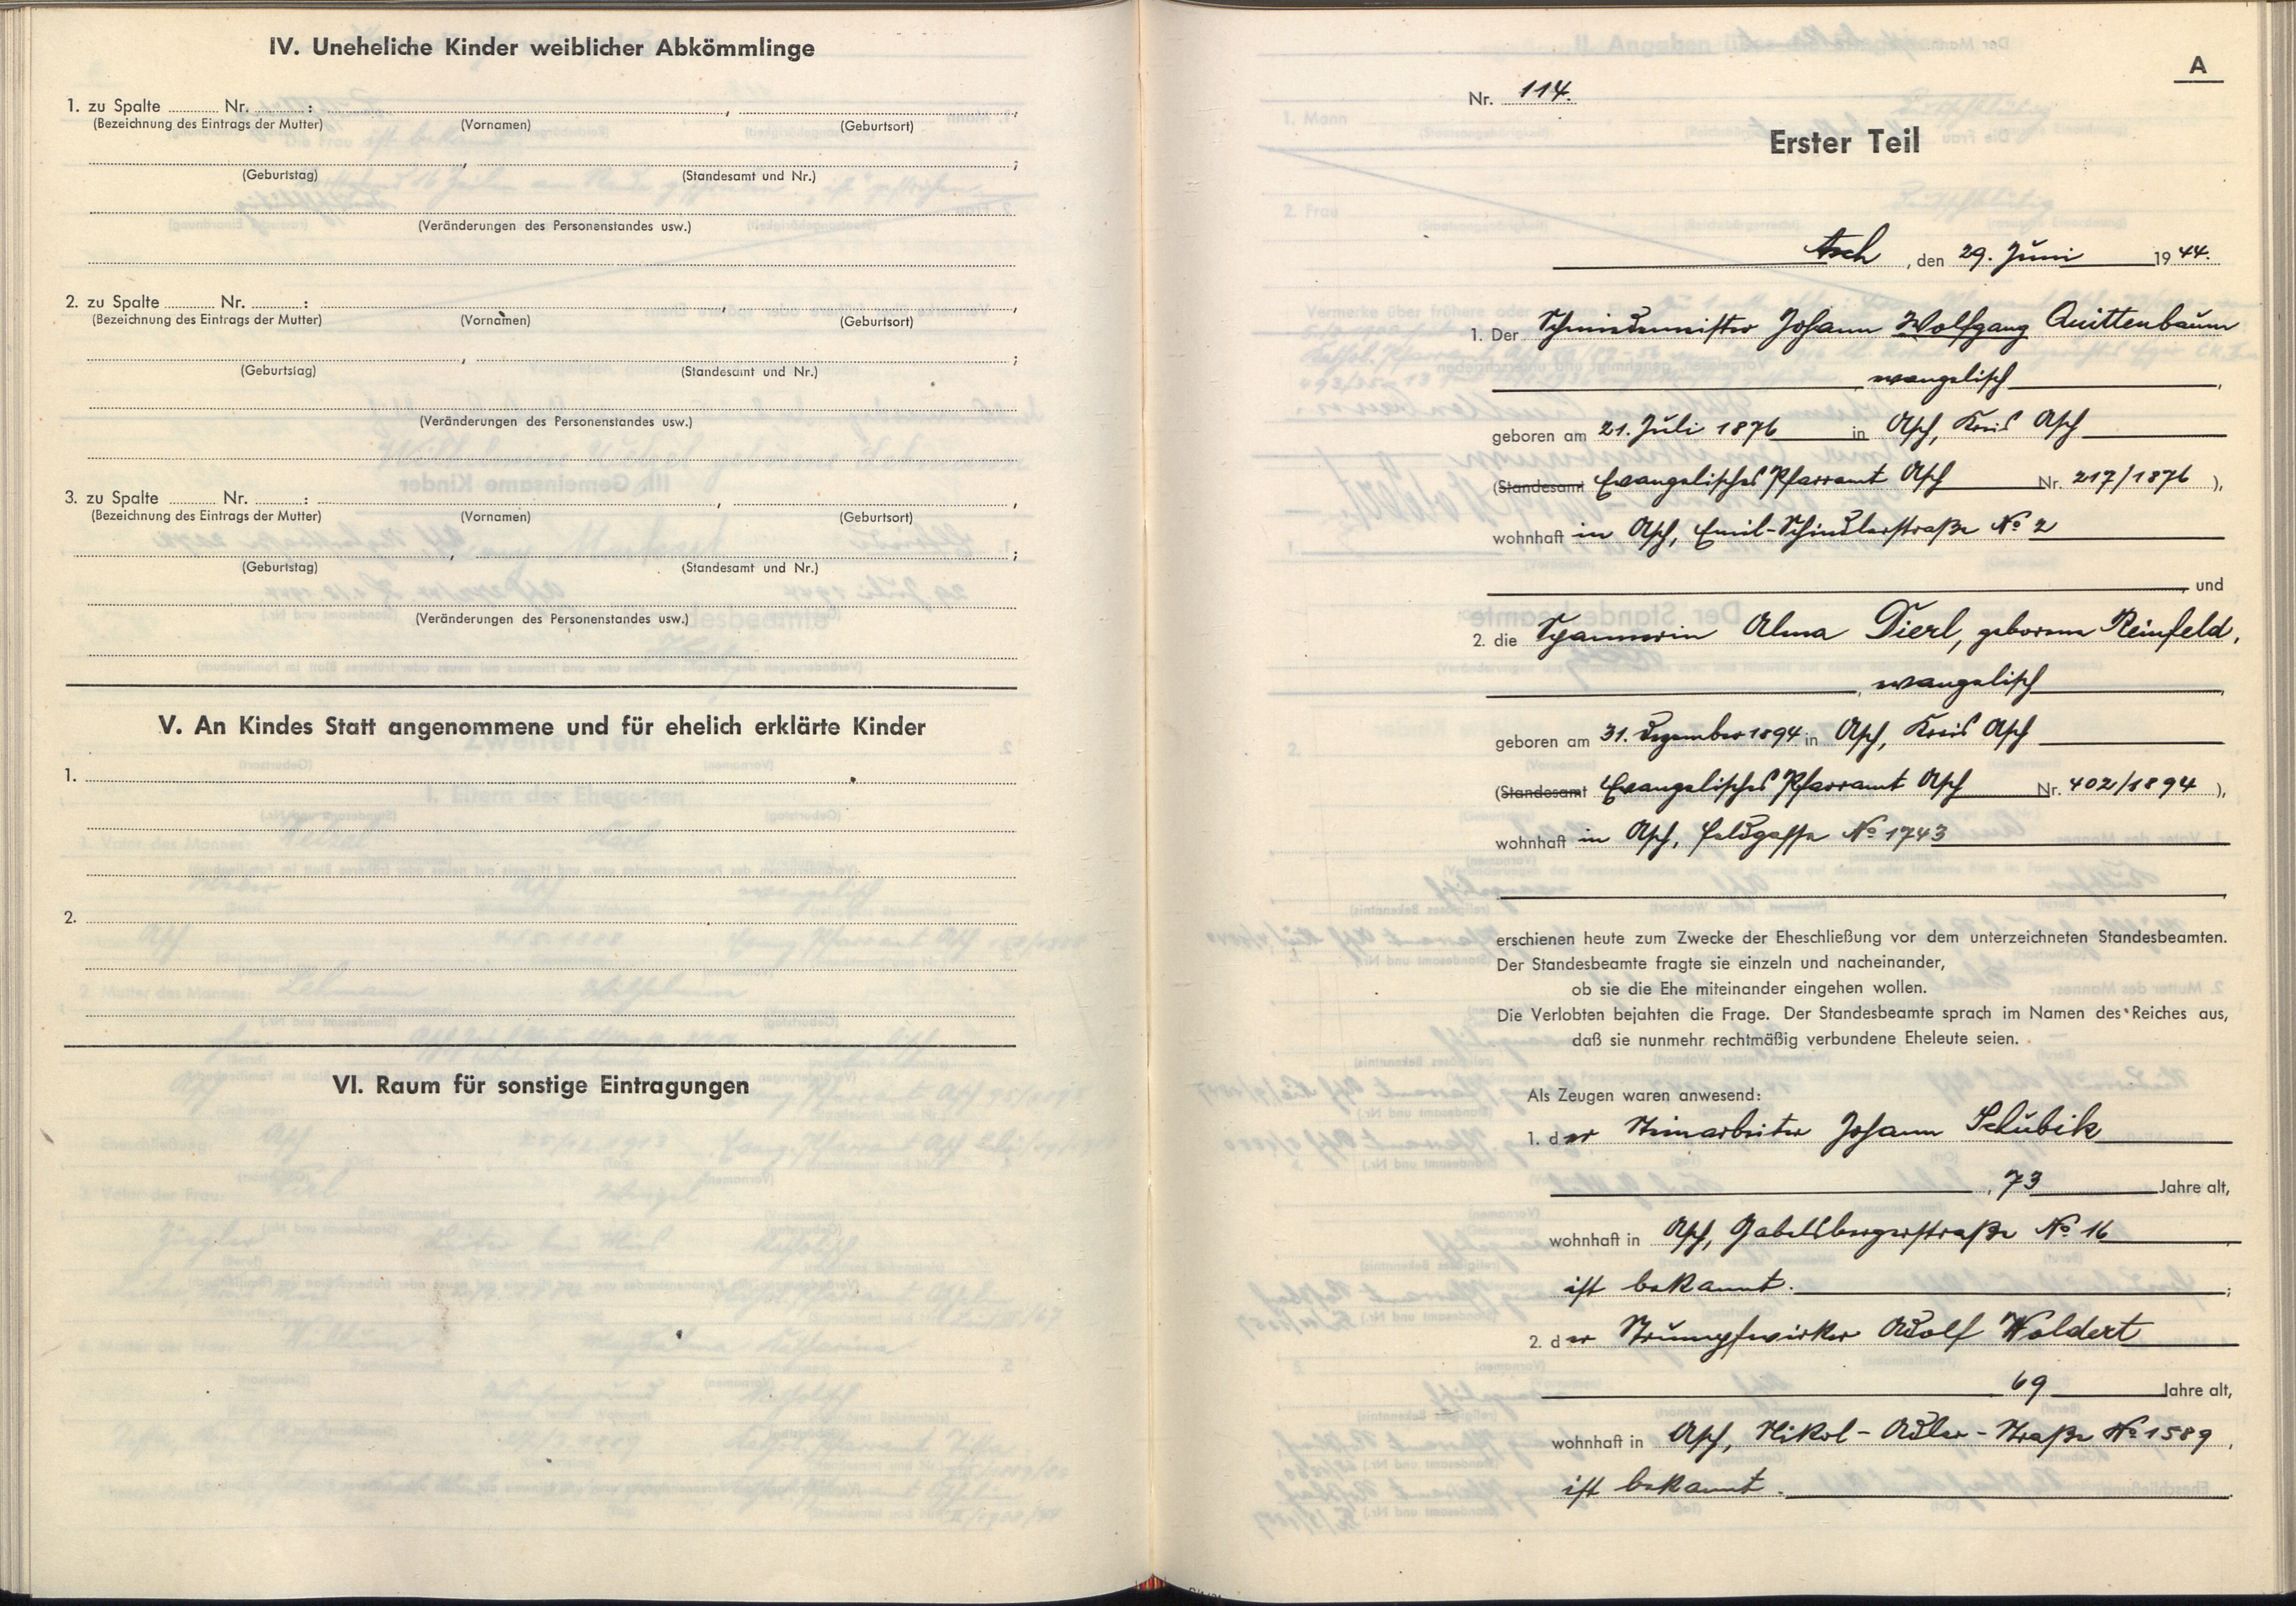 IV. Uneheliche Kinder weiblicher Abkömmlinge
1. zu Spalte Nr. : , ,
(Bezeichnung des Eintrags der Mutter) (Vornamen) (Geburtsort)
, ;
(Geburtstag) (Standesamt und Nr.)
(Veränderungen des Personenstandes usw.)
2. zu Spalte Nr. : , ,
(Bezeichnung des Eintrags der Mutter) (Vornamen) (Geburtsort)
, ;
(Geburtstag) (Standesamt und Nr.)
(Veränderungen des Personenstandes usw.)
3. zu Spalte Nr. : , ,
(Bezeichnung des Eintrags der Mutter) (Vornamen) (Geburtsort)
, ;
(Geburtstag) (Standesamt und Nr.)
(Veränderungen des Personenstandes usw.)
V. An Kindes Statt angenommene und für ehelich erklärte Kinder
1.
2.
VI. Raum für sonstige Eintragungen
A
Nr. 114.
Erster Teil
Asch, den 29. Juni 1944.
1. Der Schmiedemeister Johann Wolfgang Quittenbaum
, evangelisch,
geboren am 21. Juli 1876 in Asch, Kreis Asch
(Standesamt Evangelisches Pfarramt Asch Nr. 217/1876),
wohnhaft in Asch, Emil-Schindlerstraße No 2
, und
2. die Alma Dierl, geborene Reinfeld,
, evangelisch,
geboren am 31. Dezember 1894 in Asch, Kreis Asch
(Standesamt Evangelisches Pfarramt Asch Nr. 402/1894),
wohnhaft in Asch, Feldgasse No 1743
erschienen heute zum Zwecke der Eheschließung vor dem unterzeichneten Standesbeamten.
Der Standesbeamte fragte sie einzeln und nacheinander,
ob sie die Ehe miteinander eingehen wollen.
Die Verlobten bejahten die Frage. Der Standesbeamte sprach im Namen des Reiches aus,
daß sie nunmehr rechtmäßig verbundene Eheleute seien.
Als Zeugen waren anwesend:
1. der Heimarbeiter Johann Schubik
, 73 Jahre alt,
wohnhaft in Asch, Gabelsbergerstraße No 16
ist bekannt. ;
2. der Strumpfwirker Adolf Woldert
69 Jahre alt,
wohnhaft in Asch, Nikol-Adler-Straße No 1589,
ist bekannt.